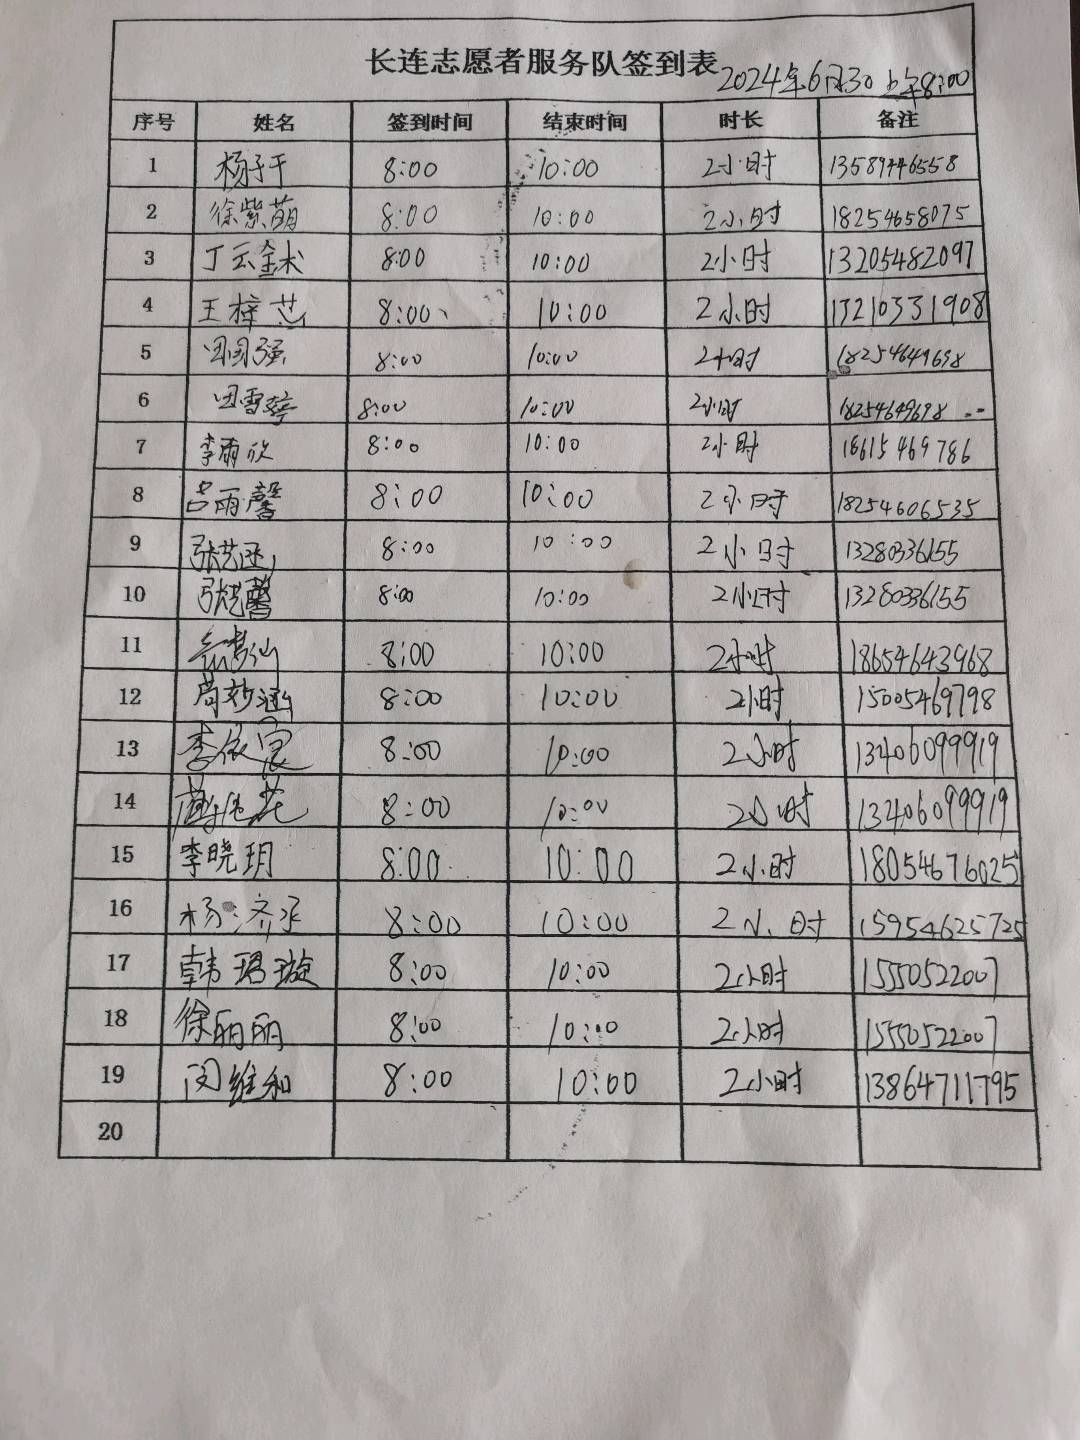 长连志愿者服务队签到表
2024年6月30上午8:00
序号 姓名 签到时间 结束时间 时长 备注
1 杨子千 8:00 10:00 2小时 13589446558
2 徐紫萌 8:00 10:00 2小时 18254658075
3 丁云鑫 8:00 10:00 2小时 13205482097
4 王梓芯 8:00 10:00 2小时 13210331908
5 田国强 8:00 10:00 2小时 18254649698
6 田雪婷 8:00 10:00 2小时 18254649698
7 李雨欣 8:00 10:00 2小时 16615469786
8 吕雨馨 8:00 10:00 2小时 18254606535
9 张艺涵 8:00 10:00 2小时 13280336155
10 张艺馨 8:00 10:00 2小时 13280336155
11 8:00 10:00 2小时 18654643968
12 苟妙涵 8:00 10:00 2小时 15005469798
13 李依宸 8:00 10:00 2小时 13406099919
14 8:00 10:00 2小时 13406099919
15 李晓玥 8:00 10:00 2小时 18054676025
16 杨济丞 8:00 10:00 2小时 15954625725
17 韩珺璇 8:00 10:00 2小时 15550522007
18 徐丽丽 8:00 10:00 2小时 15550522007
19 闵维和 8:00 10:00 2小时 13864711795
20